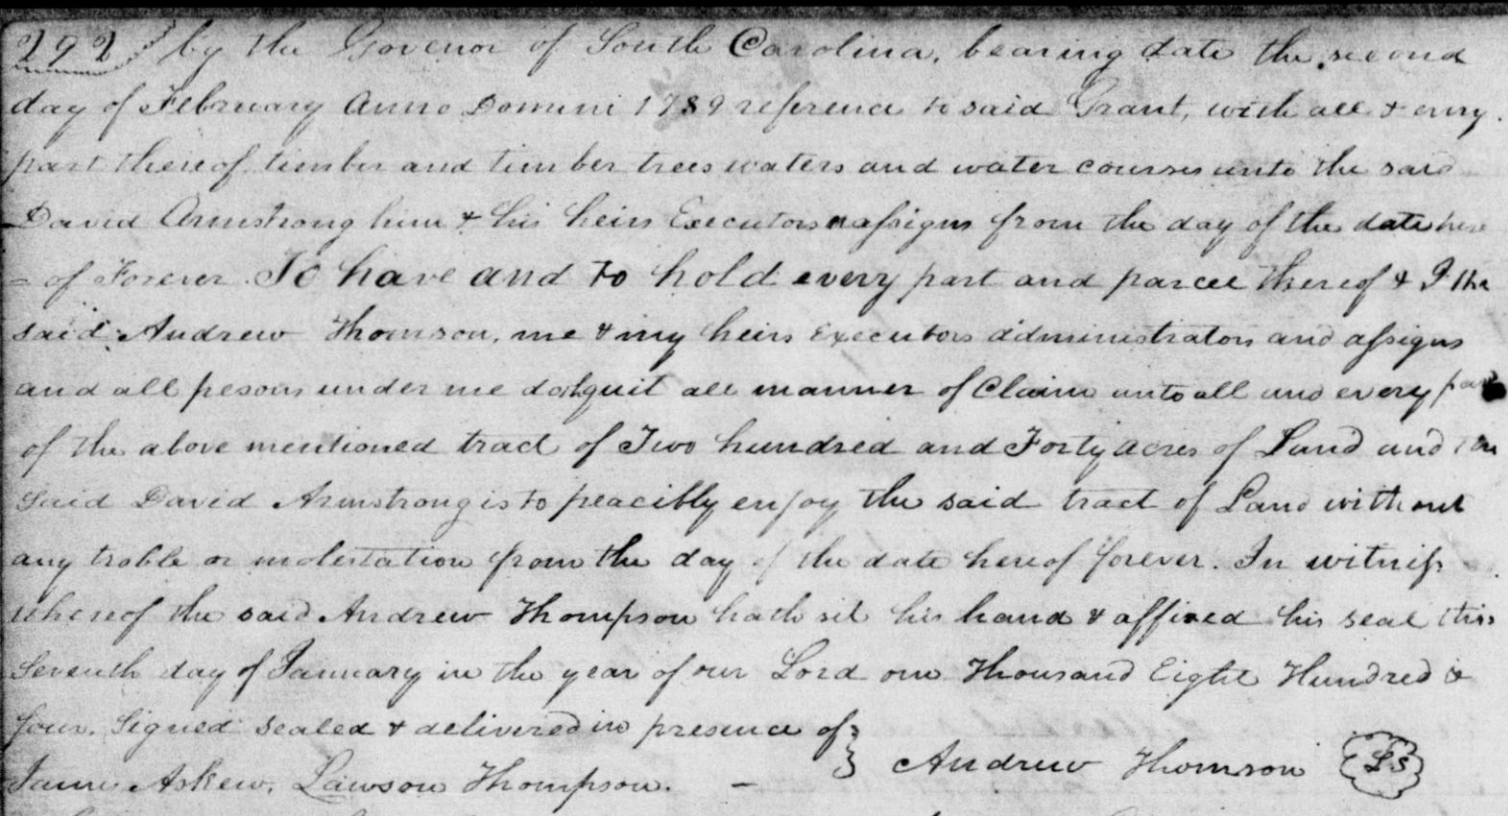 292 by the Govenor of South Carolina, bearing date the second
day of February Anno Domini 1789 reference to said Grant, with all & evry
part thereof timber and timber trees waters and water courses unto the said
David Armstrong him & his heirs Executors assigns from the day of the date here
= of Forever. To have and to hold every part and parcel thereof & I the
said Andrew Thomson, me & my heirs Executors administrators and assigns
and all pesons under me do quit all manner of Claim unto all and every part
of the above mentioned tract of Two hundred and Forty acres of Land and the
said David Armstrong is to peacibly enjoy the said tract of Land without
any troble or molestation from the day of the date hereof forever. In witness
whereof the said Andrew Thompson hath set his hand & affixed his seal this
Seventh day of January in the year of our Lord one Thousand Eight Hundred &
four. Signed sealed & delivered in presence of }
James Askew, Lawson Thompson. — Andrew Thomson LS